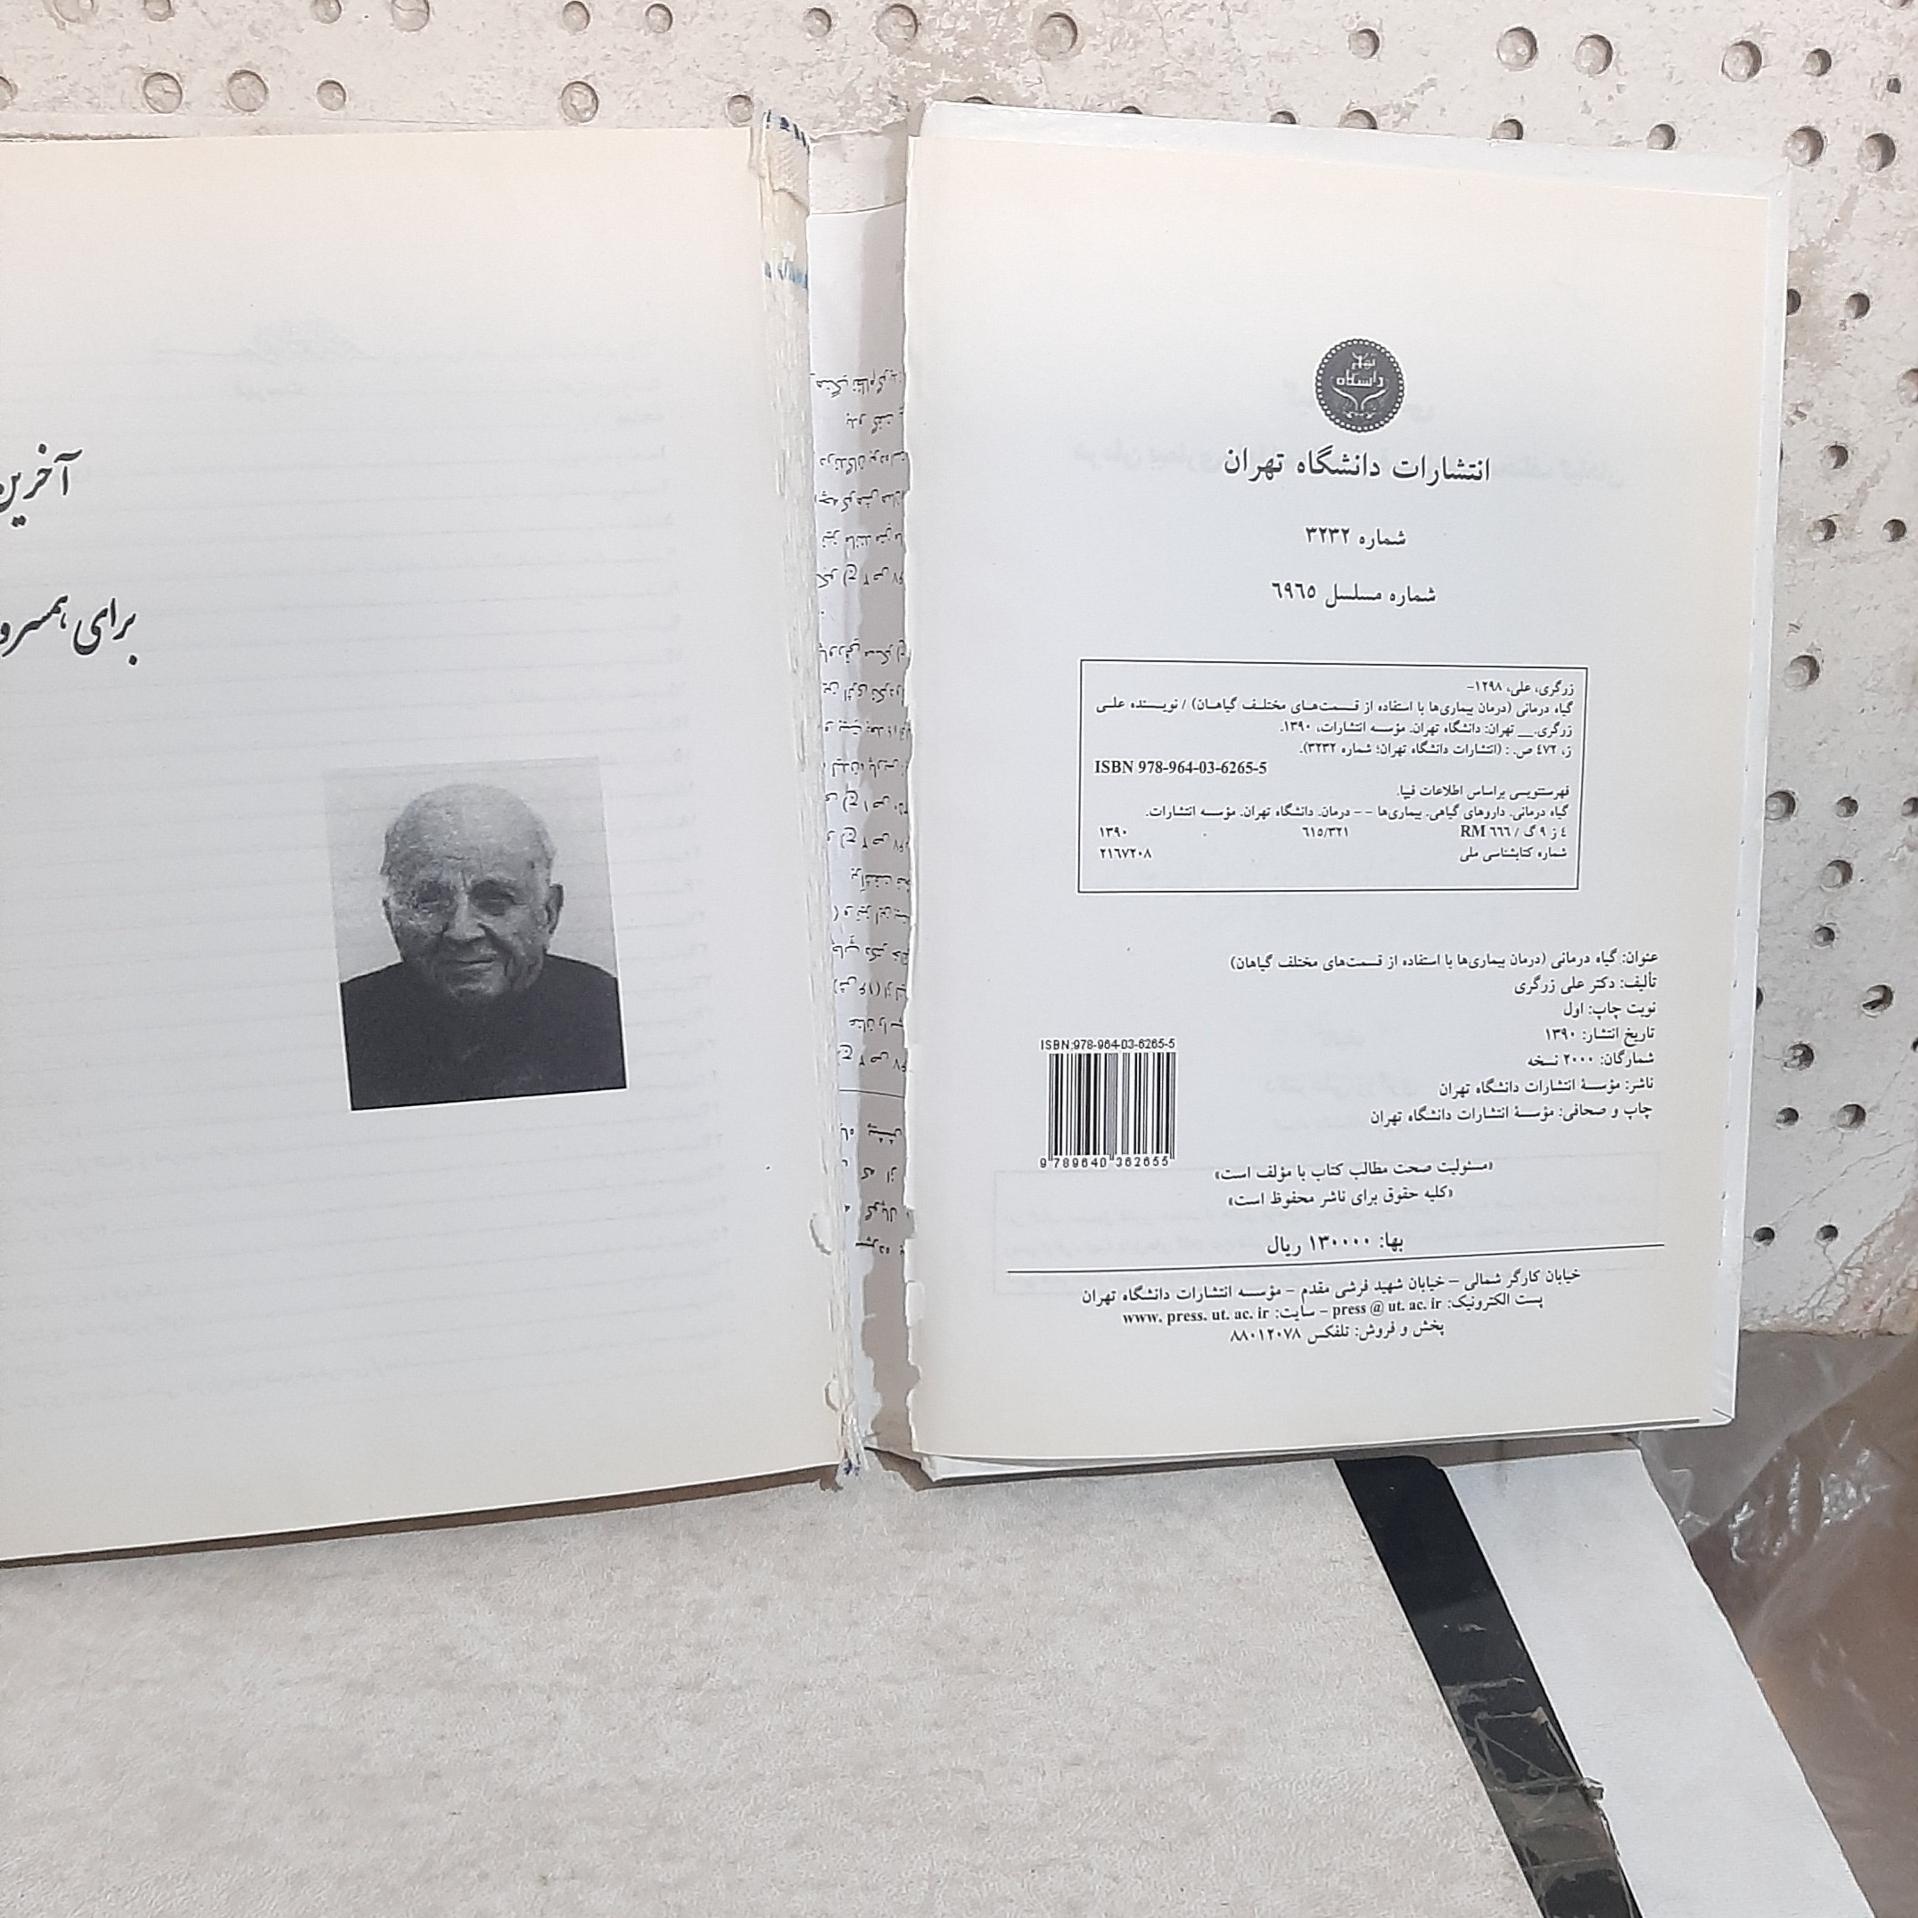 انتشارات دانشگاه تهران
شماره ۳۲۳۲
شماره مسلسل ٦٩٦٥
زرگری، علی، ۱۲۹۸-
گیاه درمانی (درمان بیماری‌ها با استفاده از قسمت‌های مختلف گیاهان) / نویسنده علی
زرگری.__ تهران: دانشگاه تهران. مؤسسه انتشارات، ۱۳۹۰.
ز، ٤٧٢ ص. : (انتشارات دانشگاه تهران؛ شماره ۳۲۳۲).
ISBN 978-964-03-6265-5
فهرستنویسی براساس اطلاعات فیپا.
گیاه درمانی. داروهای گیاهی. بیماری‌ها -- درمان. دانشگاه تهران. مؤسسه انتشارات.
٤ ز ۹ گ / RM ٦٦٦ ٦١٥/٣٢١ ۱۳۹۰
شماره کتابشناسی ملی ٢١٦٧٢٠٨
عنوان: گیاه درمانی (درمان بیماری‌ها با استفاده از قسمت‌های مختلف گیاهان)
تألیف: دکتر علی زرگری
نوبت چاپ: اول
تاریخ انتشار: ۱۳۹۰
شمارگان: ۲۰۰۰ نسخه
ناشر: مؤسسۀ انتشارات دانشگاه تهران
چاپ و صحافی: مؤسسۀ انتشارات دانشگاه تهران
ISBN:978-964-03-6265-5
9 789640 362655
«مسئولیت صحت مطالب کتاب با مؤلف است»
«کلیه حقوق برای ناشر محفوظ است»
بها: ۱۳۰۰۰۰ ریال
خیابان کارگر شمالی – خیابان شهید فرشی مقدم – مؤسسه انتشارات دانشگاه تهران
پست الکترونیک: press @ ut. ac. ir – سایت: www. press. ut. ac. ir
پخش و فروش: تلفکس ۸۸۰۱۲۰۷۸
آخرین
برای همسر و